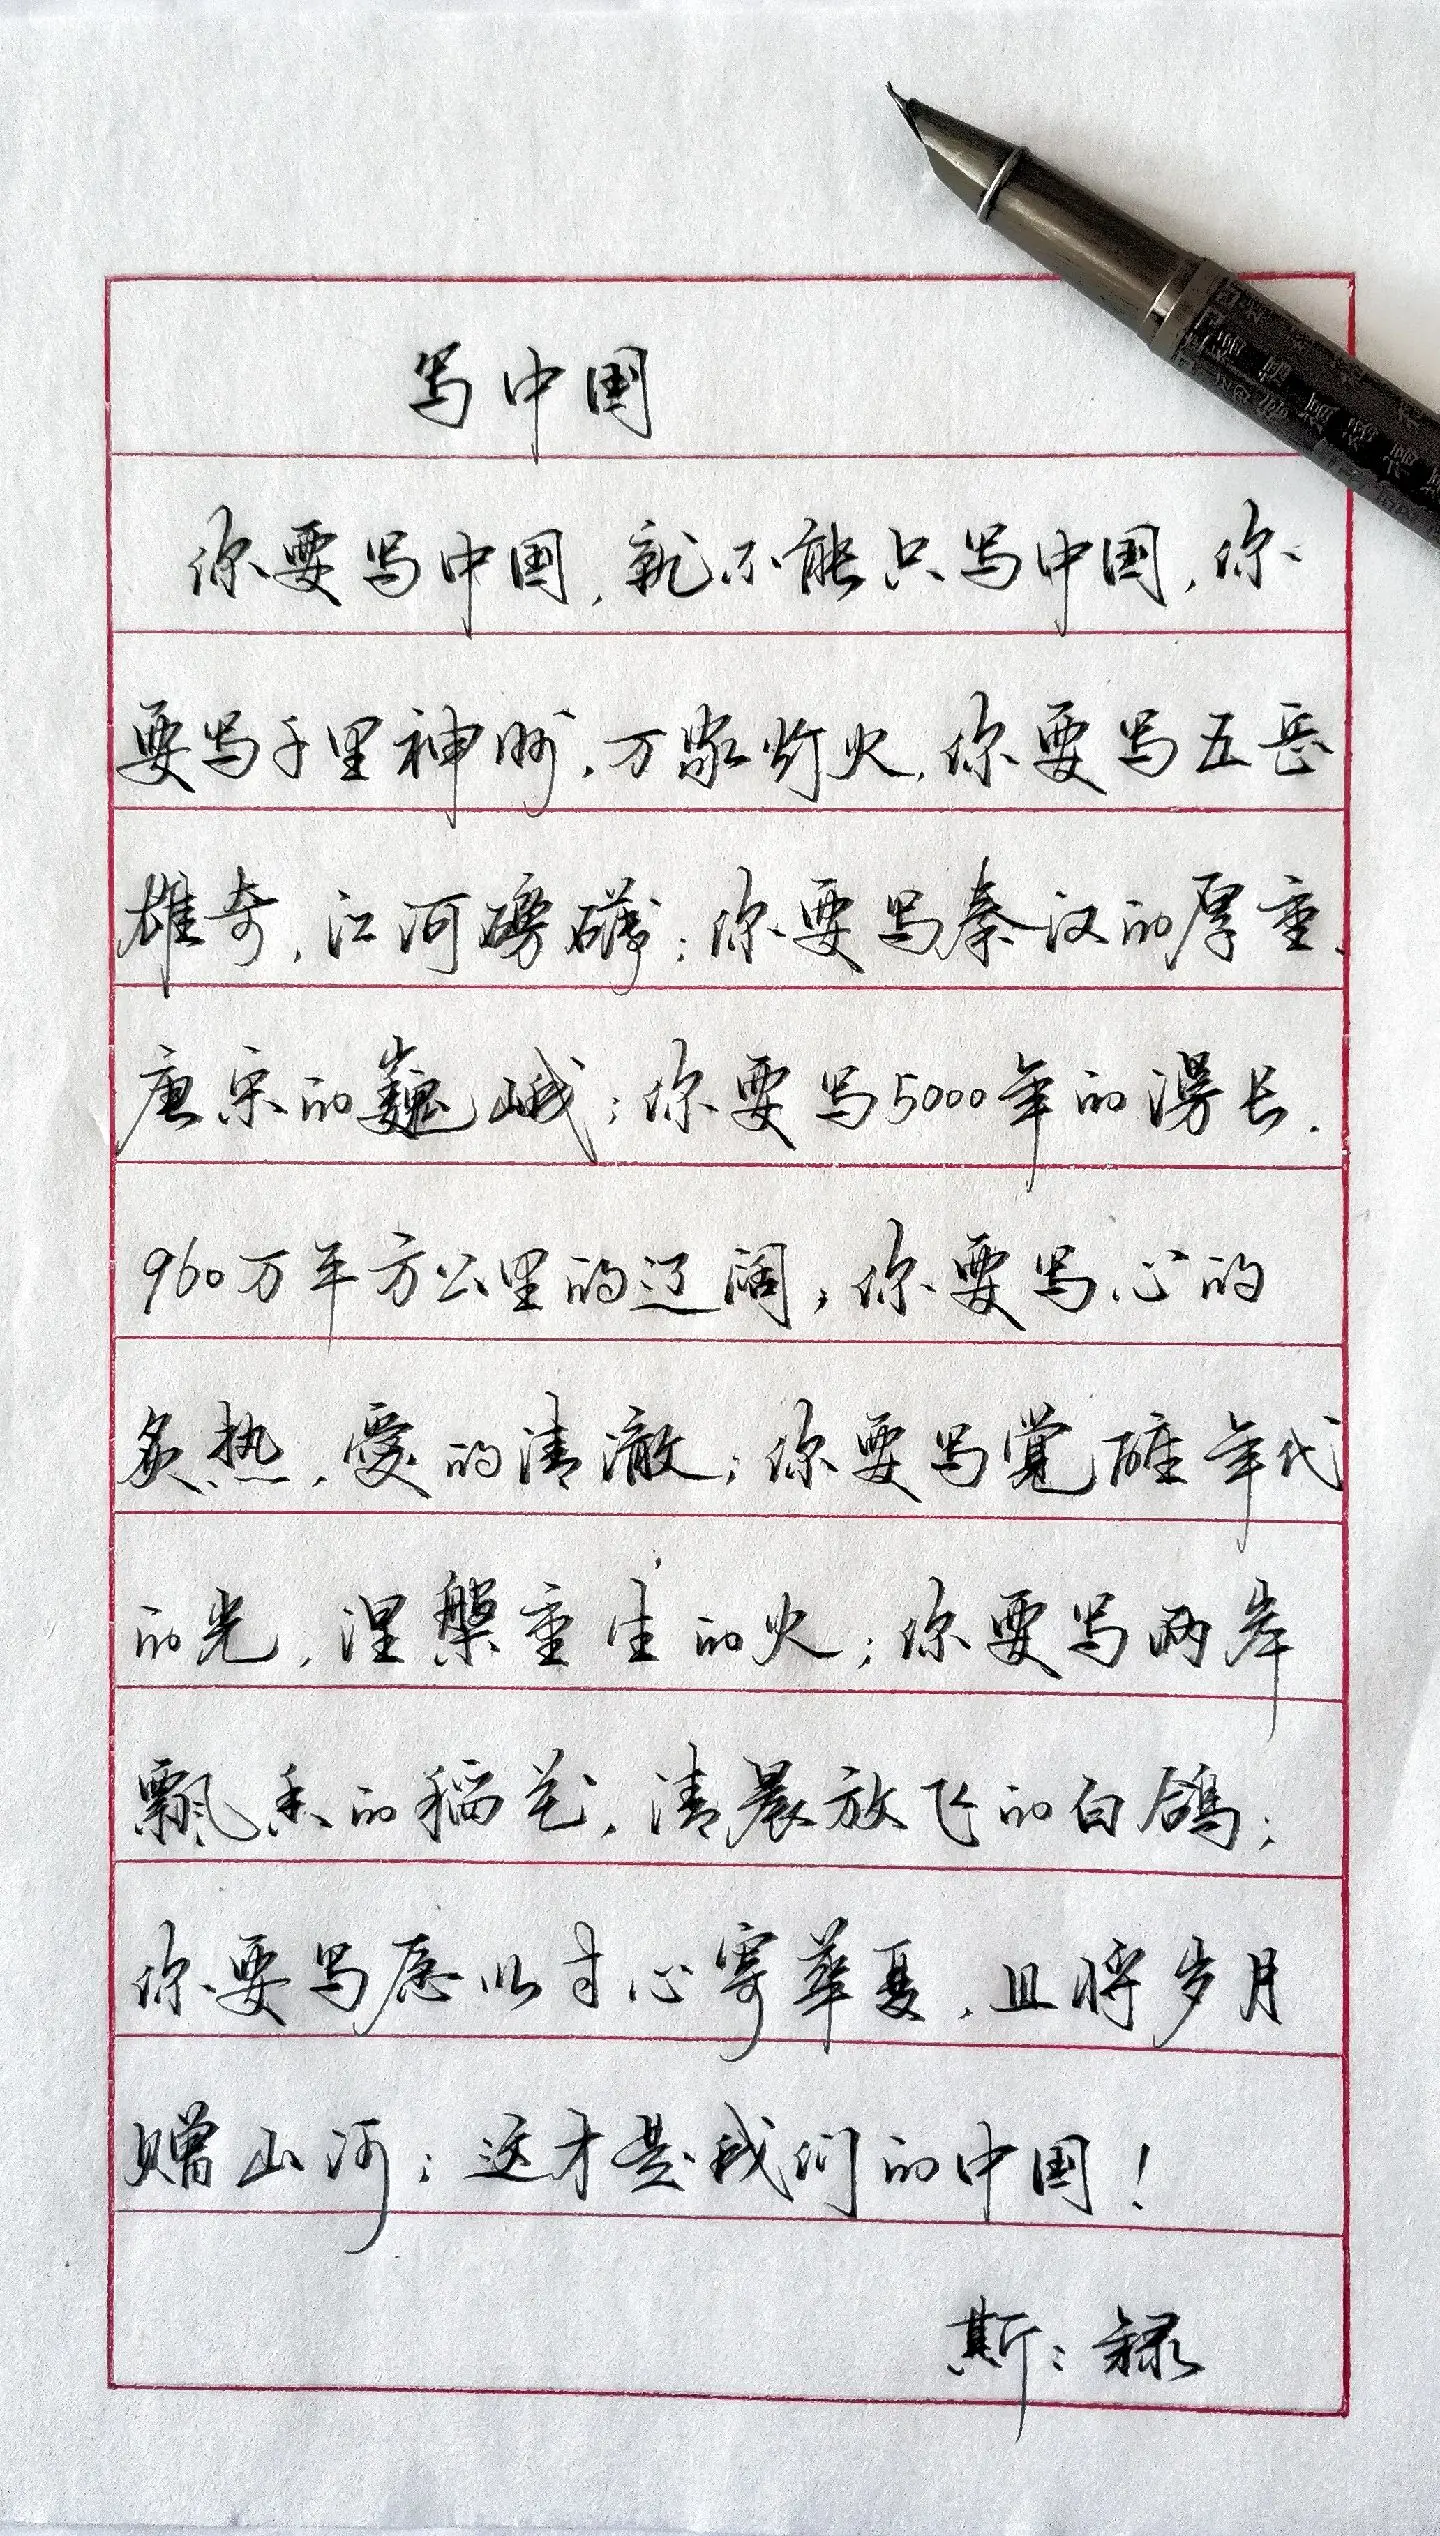 写中国
你要写中国,就不能只写中国,你
要写千里神州,万家灯火,你要写五岳
雄奇,江河磅礴;你要写秦汉的厚重、
唐宋的巍峨;你要写5000年的漫长.
960万平方公里的辽阔,你要写心的
炙热,爱的清澈;你要写觉醒年代
的光,涅槃重生的火;你要写两岸
飘香的稻花,清晨放飞的白鸽;
你要写愿以寸心寄华夏,且将岁月
赠山河;这才是我们的中国!
斯:録